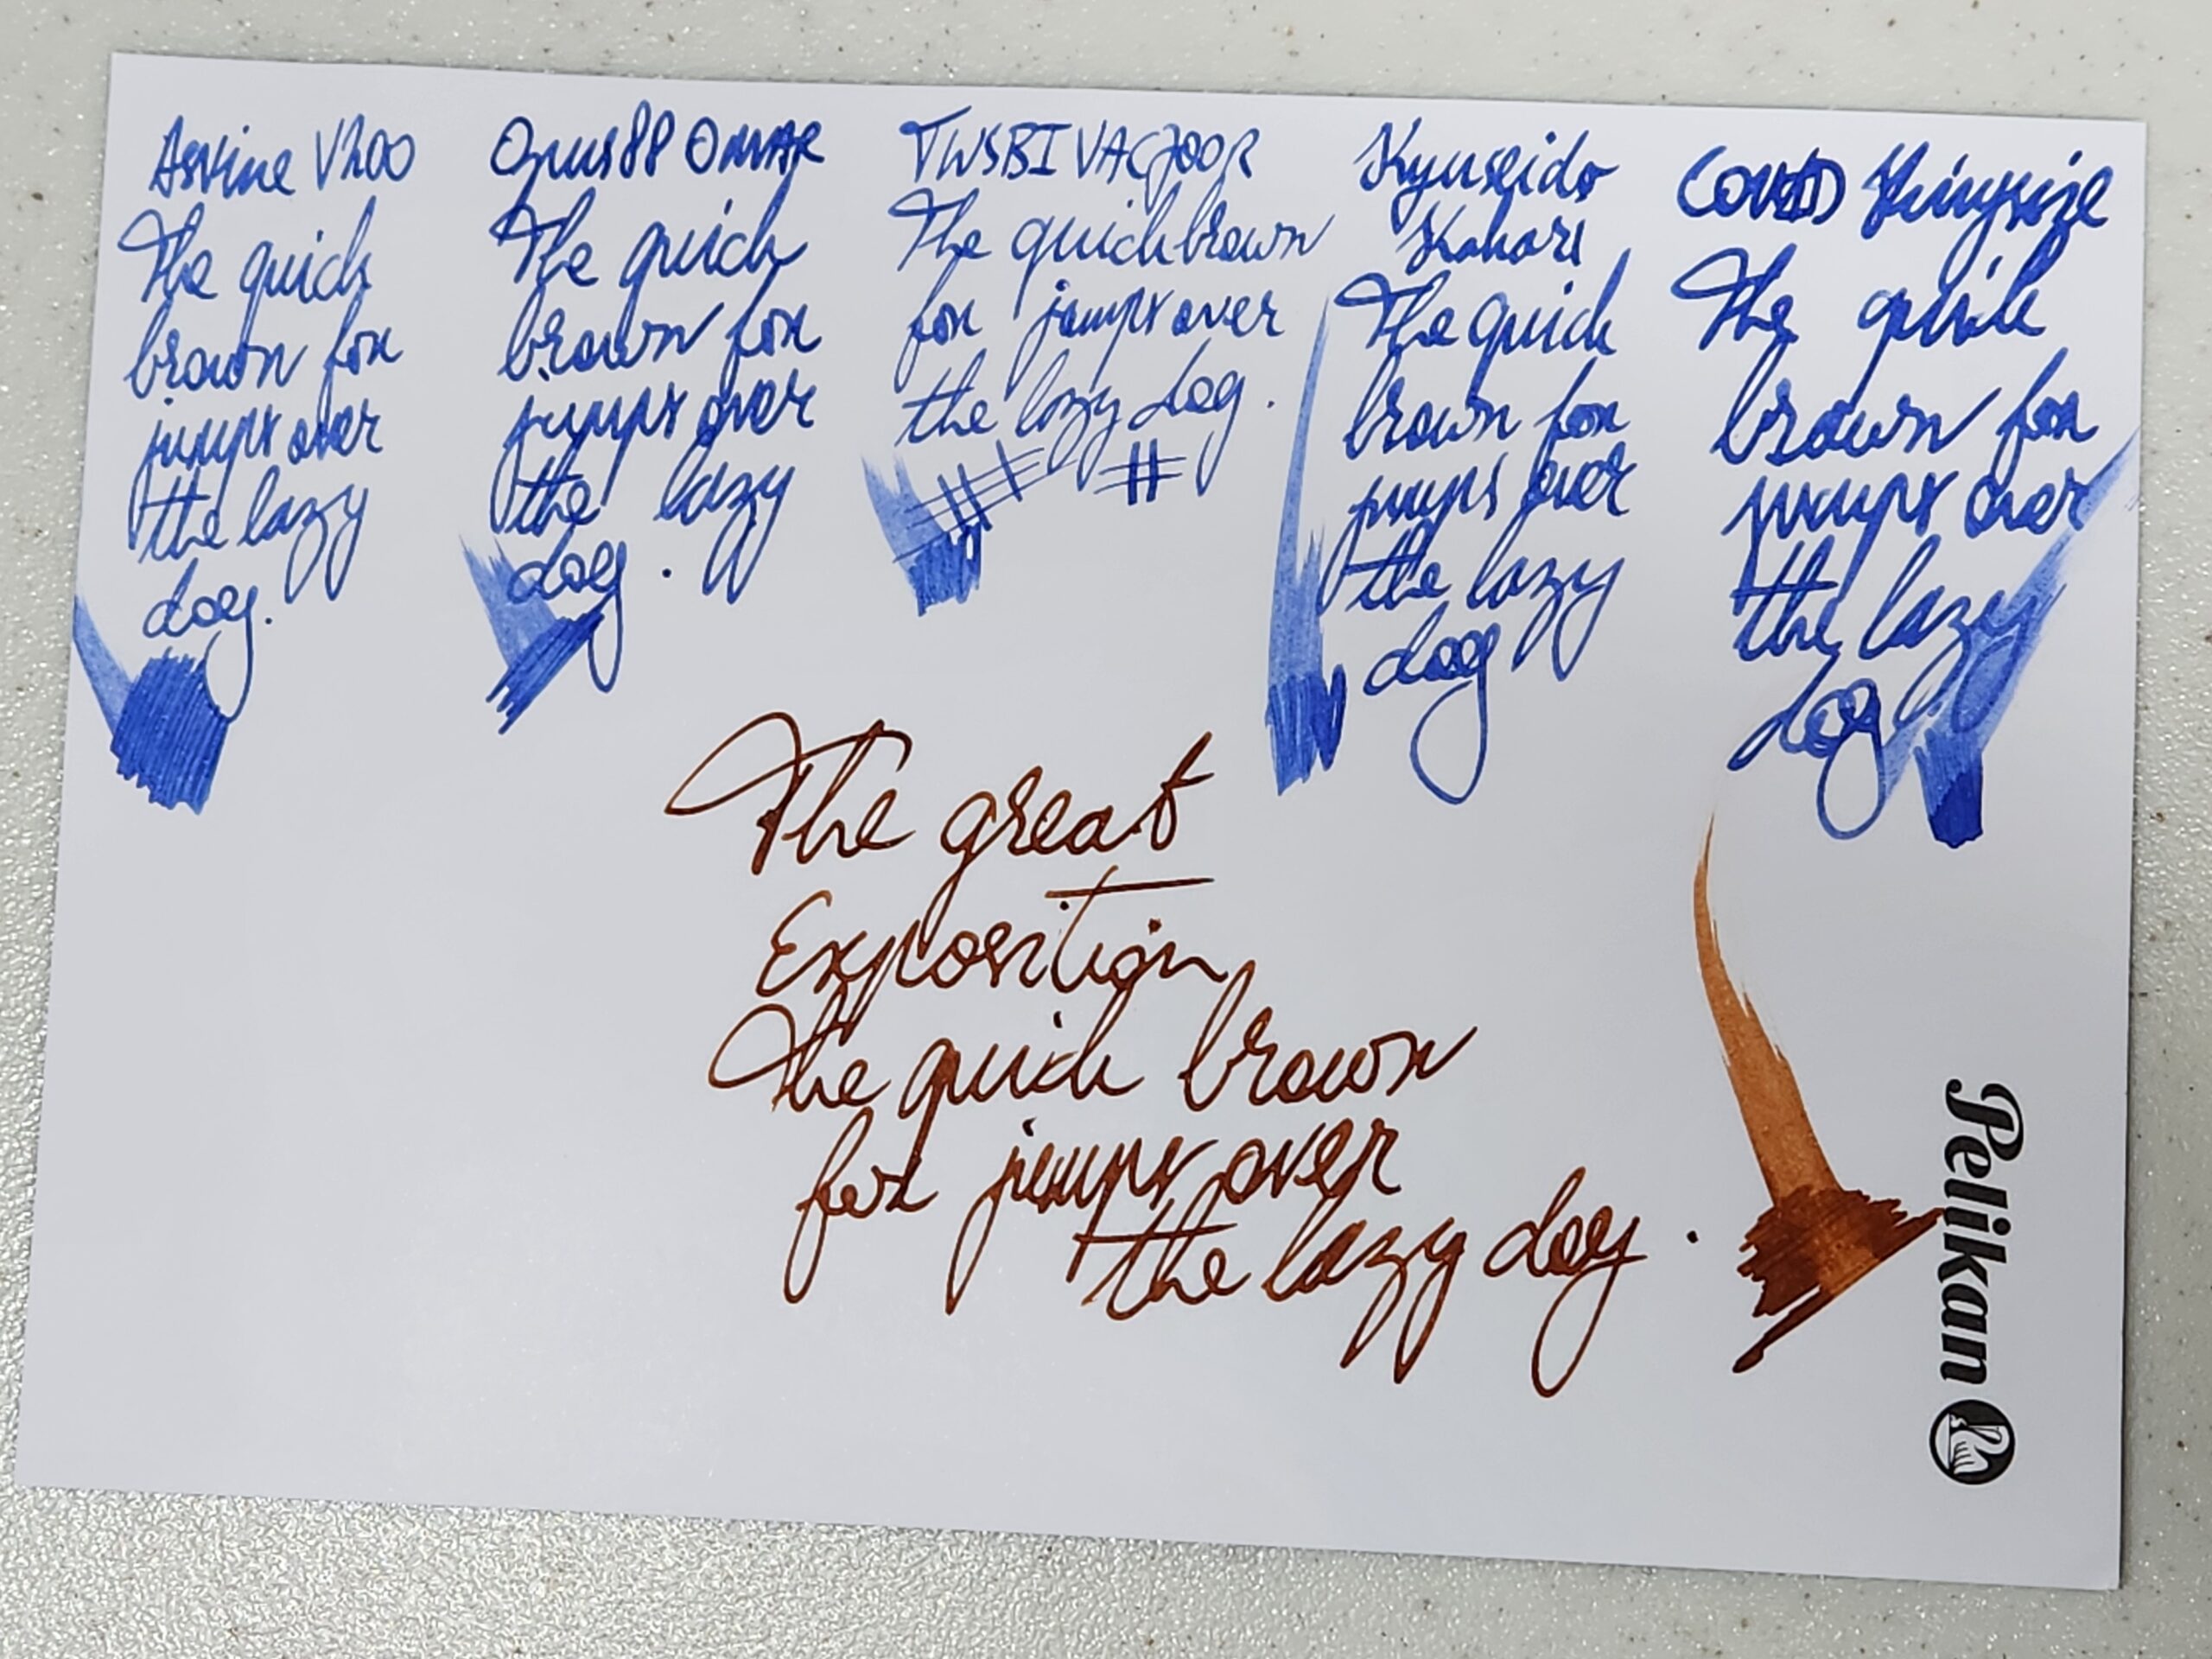 Asvine V200
The quick
brown fox
jumps over
the lazy
dog.
Opus88 OMAR
The quick
brown fox
jumps over
the lazy
dog.
TWSBI VAC700R
The quick brown
fox jumps over
the lazy dog.
Kyuseido
Kakari
The quick
brown fox
jumps over
the lazy
dog
The quick
brown fox
jumps over
the lazy
dog
The great
Exposition
The quick brown
fox jumps over
the lazy dog.
Pelikan